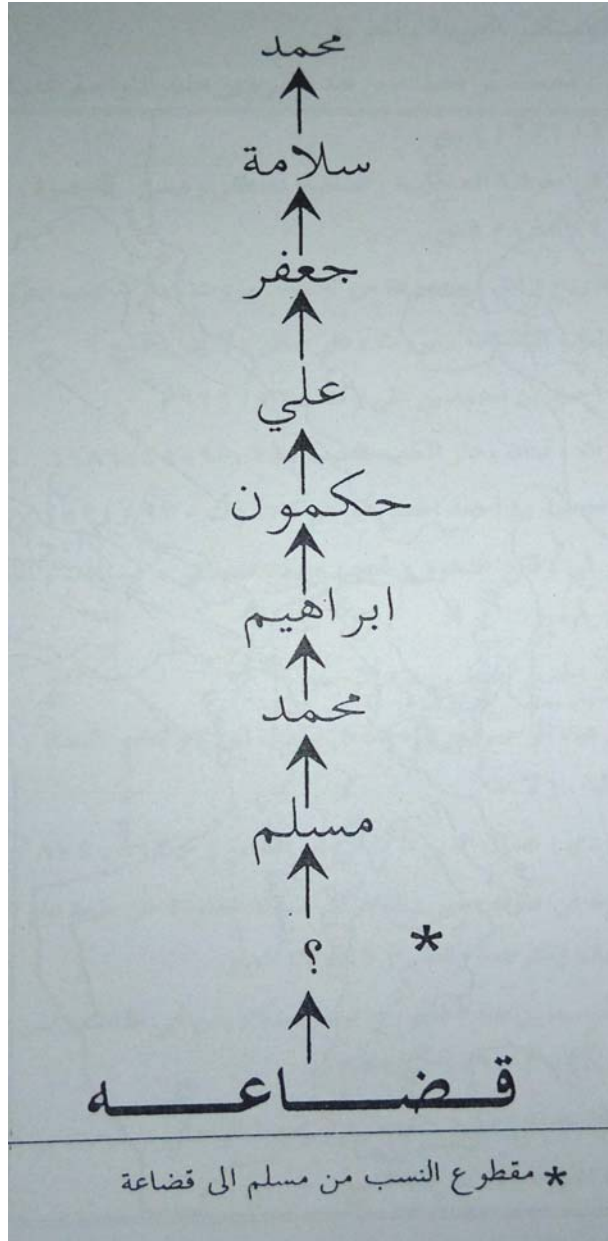 محمد
سلامة
جعفر
علي
حكمون
ابراهيم
محمد
مسلم
؟ *
قضاعه
* مقطوع النسب من مسلم الى قضاعة